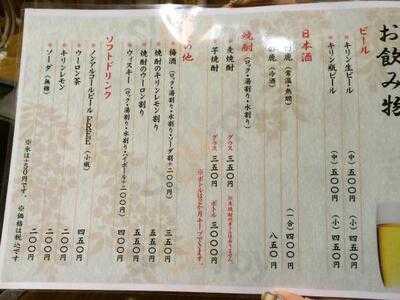 お飲み物
ビール
・キリン生ビール （中）五〇〇円 （小）四五〇円
・キリン瓶ビール （中）五五〇円 （小）四五〇円
日本酒
白鹿（常温・熱燗） （一合）四〇〇円
鹿（冷酒） 八五〇円
焼酎
・麦焼酎 グラス 三五〇円
・芋焼酎 グラス 三五〇円 ボトル 三〇〇〇円
※ボトルは三か月キープできます。
の他
梅酒（ロック・湯割り・水割り・ソーダ割+二〇〇円） 三五〇円
焼酎のキリンレモン割り 五五〇円
焼酎のウーロン割り 五五〇円
・ウィスキー（ロック・湯割り・水割り・ハイボール+二〇〇円） 四〇〇円
ソフトドリンク
・ノンアルコールビール FREE（小瓶） 四五〇円
・ウーロン茶 二〇〇円
・キリンレモン 二〇〇円
・ソーダ（無糖） 二〇〇円
※氷は+五〇円です。 ※価格は税込です